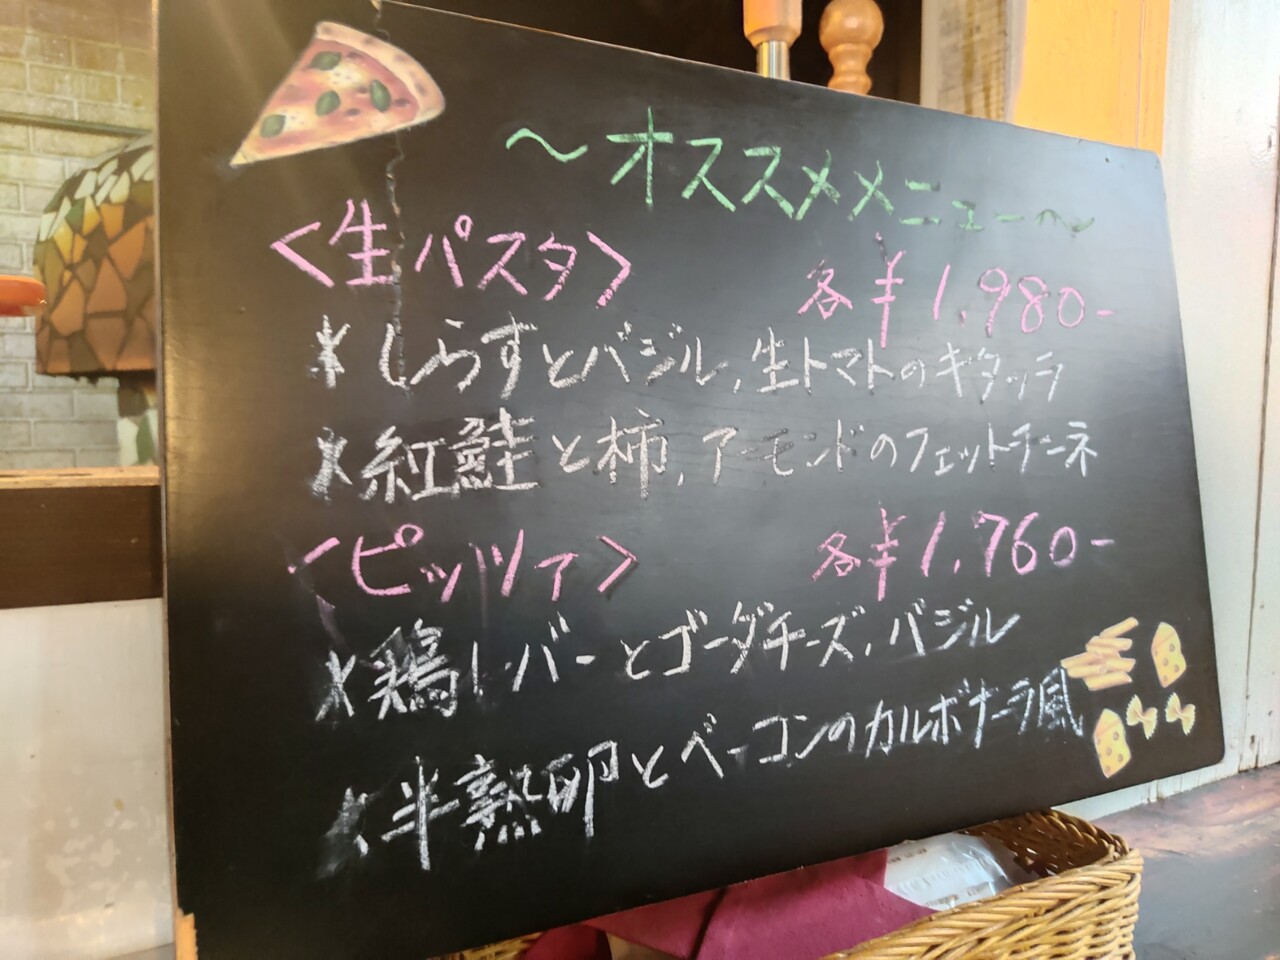 ～オススメメニュー～
<生パスタ>
各¥1.980-
* しらすとバジル,生トマトのキタッラ
* 紅鮭と柿,アーモンドのフェットチーネ
<ピッツァ>
各¥1.760-
* 鶏レバーとゴーダチーズ,バジル
* 半熟卵とベーコンのカルボナーラ風